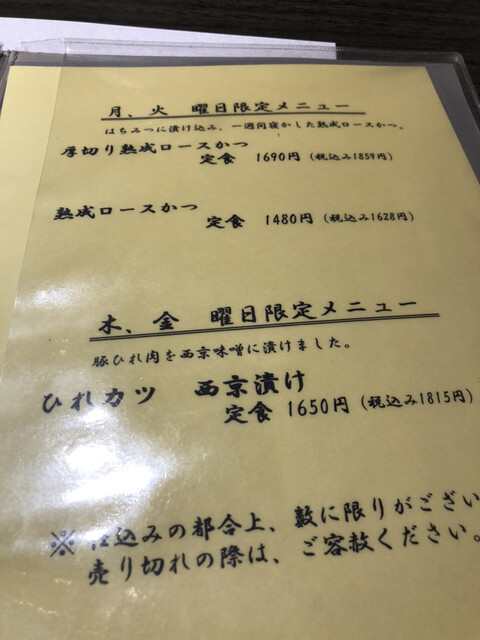 月、火 曜日限定メニュー
はちみつに漬け込み、一週間寝かした熟成ロースかつ。
厚切り熟成ロースかつ
定食 1690円 (税込み1859円)
熟成ロースかつ
定食 1480円 (税込み1628円)
木、金 曜日限定メニュー
豚ひれ肉を西京味噌に漬けました。
ひれカツ 西京漬け
定食 1650円 (税込み1815円)
※ 仕込みの都合上、数に限りがござい
売り切れの際は、ご容赦ください。